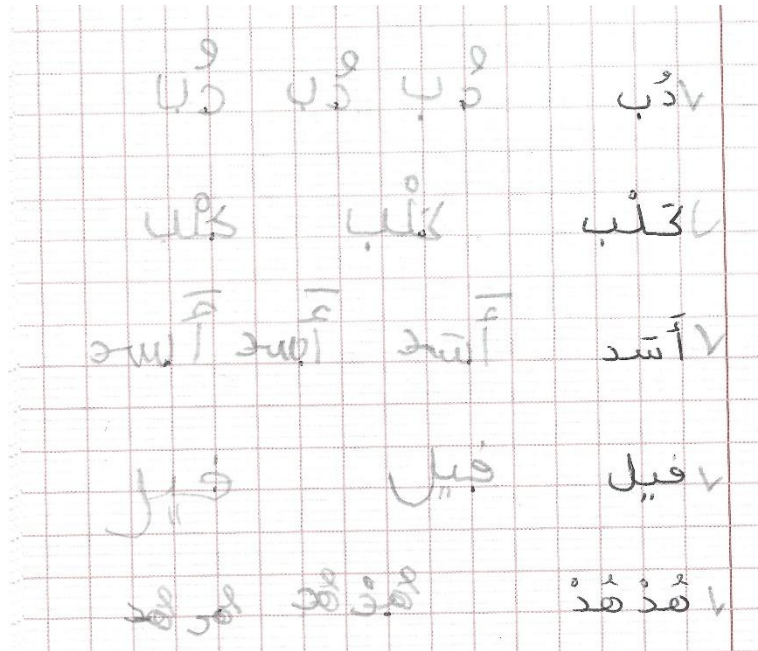 دُب دُب دُب دُب
كَلْب كَلْب كَلْب
أَسَد أَسَد أَسَد أَسَد
فيل فيل فيل
هُدْ هُدْ هُدْ هُد هُد هُد